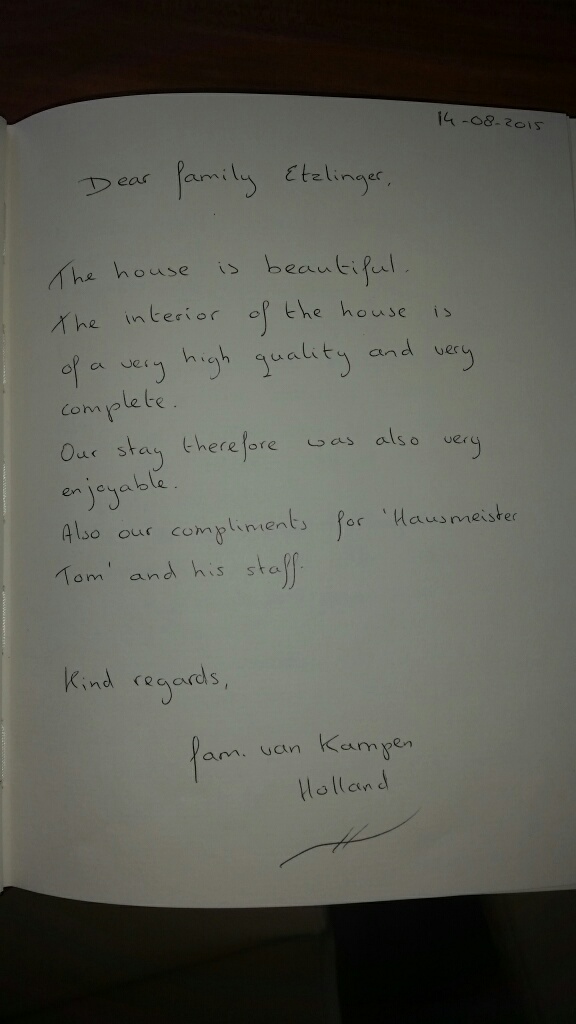 14-08-2015
Dear family Etzlinger,
The house is beautiful.
The interior of the house is
of a very high quality and very
complete.
Our stay therefore was also very
enjoyable.
Also our compliments for 'Hausmeister
Tom' and his staff.
Kind regards,
fam. van Kampen
Holland